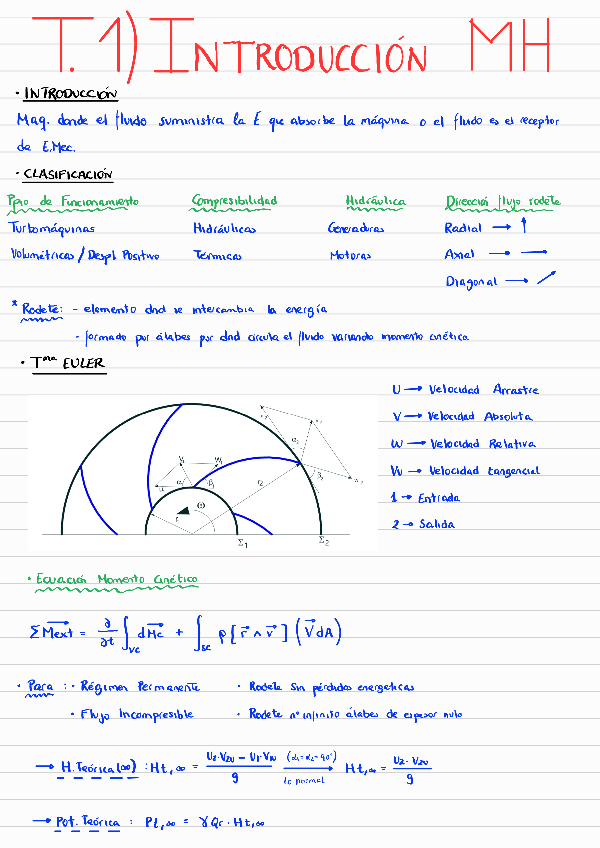 T.1) INTRODUCCIÓN MH
· INTRODUCCIÓN
Maq. donde el fluido suministra la E que absorbe la máquina o el fluido es el receptor
de E.Mec.
· CLASIFICACIÓN
Ppio de Funcionamiento Compresibilidad Hidráulica Dirección flujo rodete
Turbomáquinas Hidráulicas Generadoras Radial → ↑
Volumétricas / Despl Positivo Térmicas Motoras Axial → →
Diagonal → ↗
* Rodete: - elemento dnd se intercambia la energía
- formado por álabes por dnd circula el fluido variando momento cinético
· Tma EULER
U → Velocidad Arrastre
V → Velocidad Absoluta
W → Velocidad Relativa
Vu → Velocidad tangencial
1 → Entrada
2 → Salida
V1 W1
u α1 β1 r2 α2 β2
r1 Θ
Σ1 Σ2
· Ecuación Momento Cinético
ΣMext = ∂/∂t ∫VC dMc + ∫SC ρ [r ∧ v] (V dA)
· Para : · Régimen Permanente · Rodete Sin pérdidas energeticas
· Flujo Incompresible · Rodete nº infinito álabes de espesor nulo
→ H.Teórica(∞) : Ht,∞ = U2·V2U − U1·V1U / g (α1=α2=90°) lo normal → Ht,∞ = U2·V2U / g
→ Pot. Teórica : Pt,∞ = γ Qr · Ht,∞